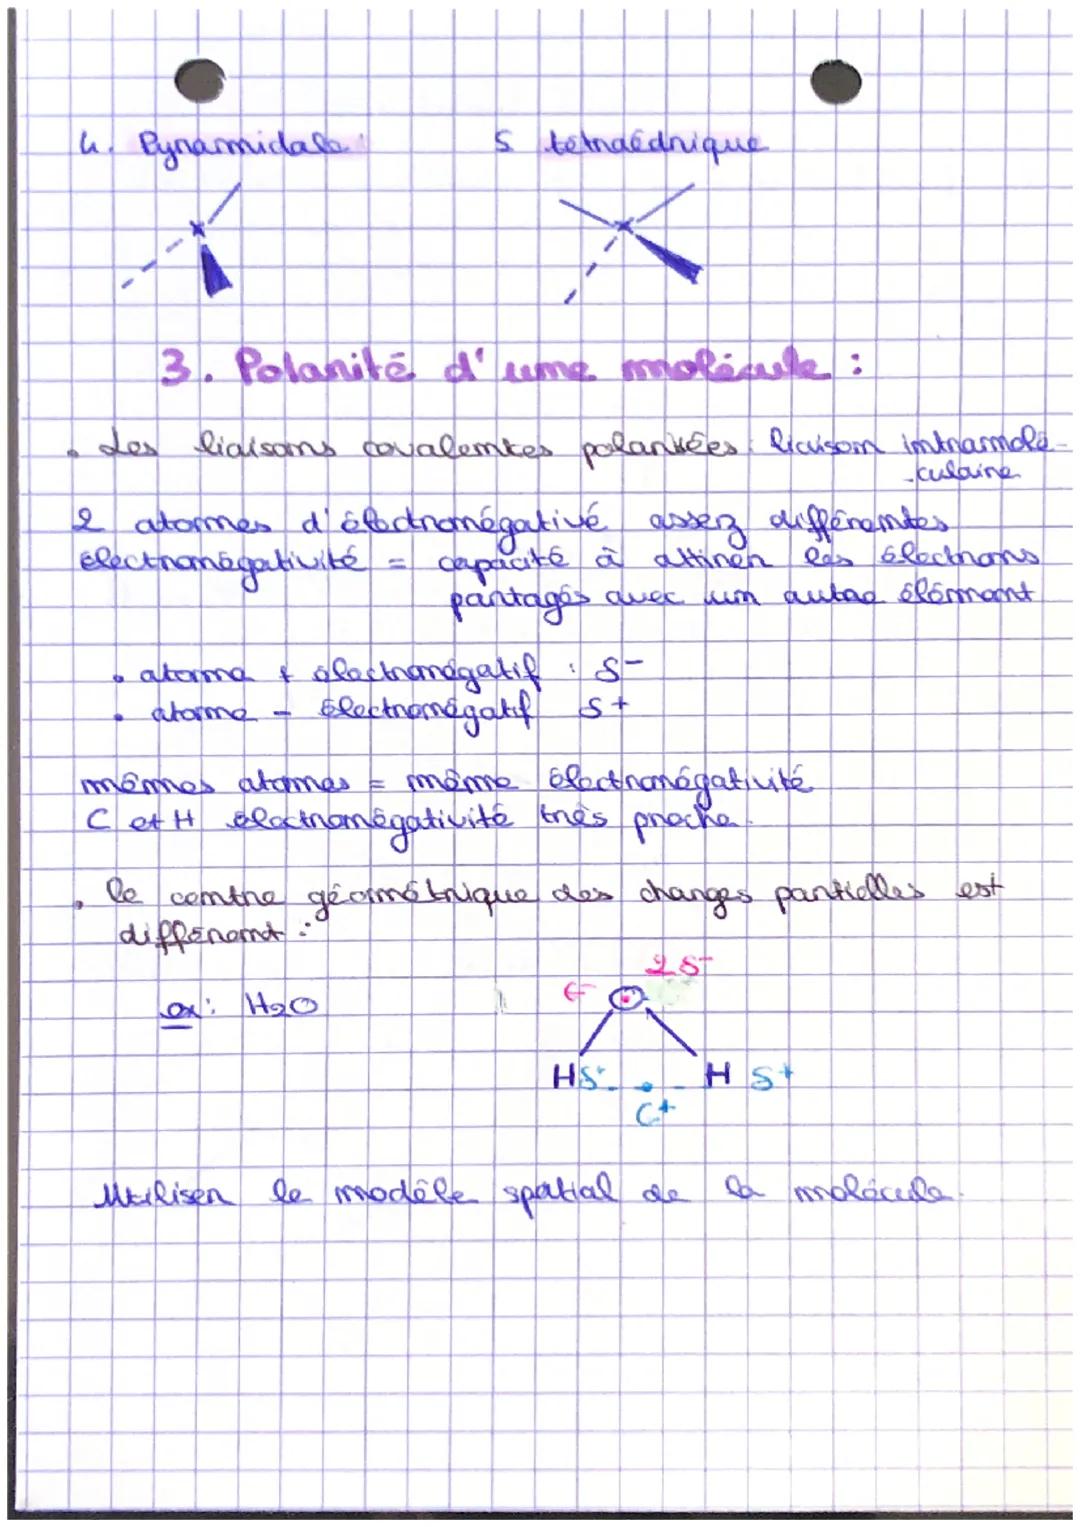 4. Pyramidale :
5 tétraédrique
3. Polarité d'une molécule :
• Les liaisons covalentes polarisées : liaison intramolé-
-culaire
2 atomes d'électronégativé assez différentes
électronégativité = capacité à attirer les électrons
partagés avec un autre élément
• atome + électronégatif : δ-
• atome - électronégatif δ+
mêmes atomes = même électronégativité
C et H électronégativité très proche.
• le centre géométrique des charges partielles est
différent :
ex : H2O
2δ-
C-
O
H δ+ H δ+
C+
Utiliser le modèle spatial de la molécule.